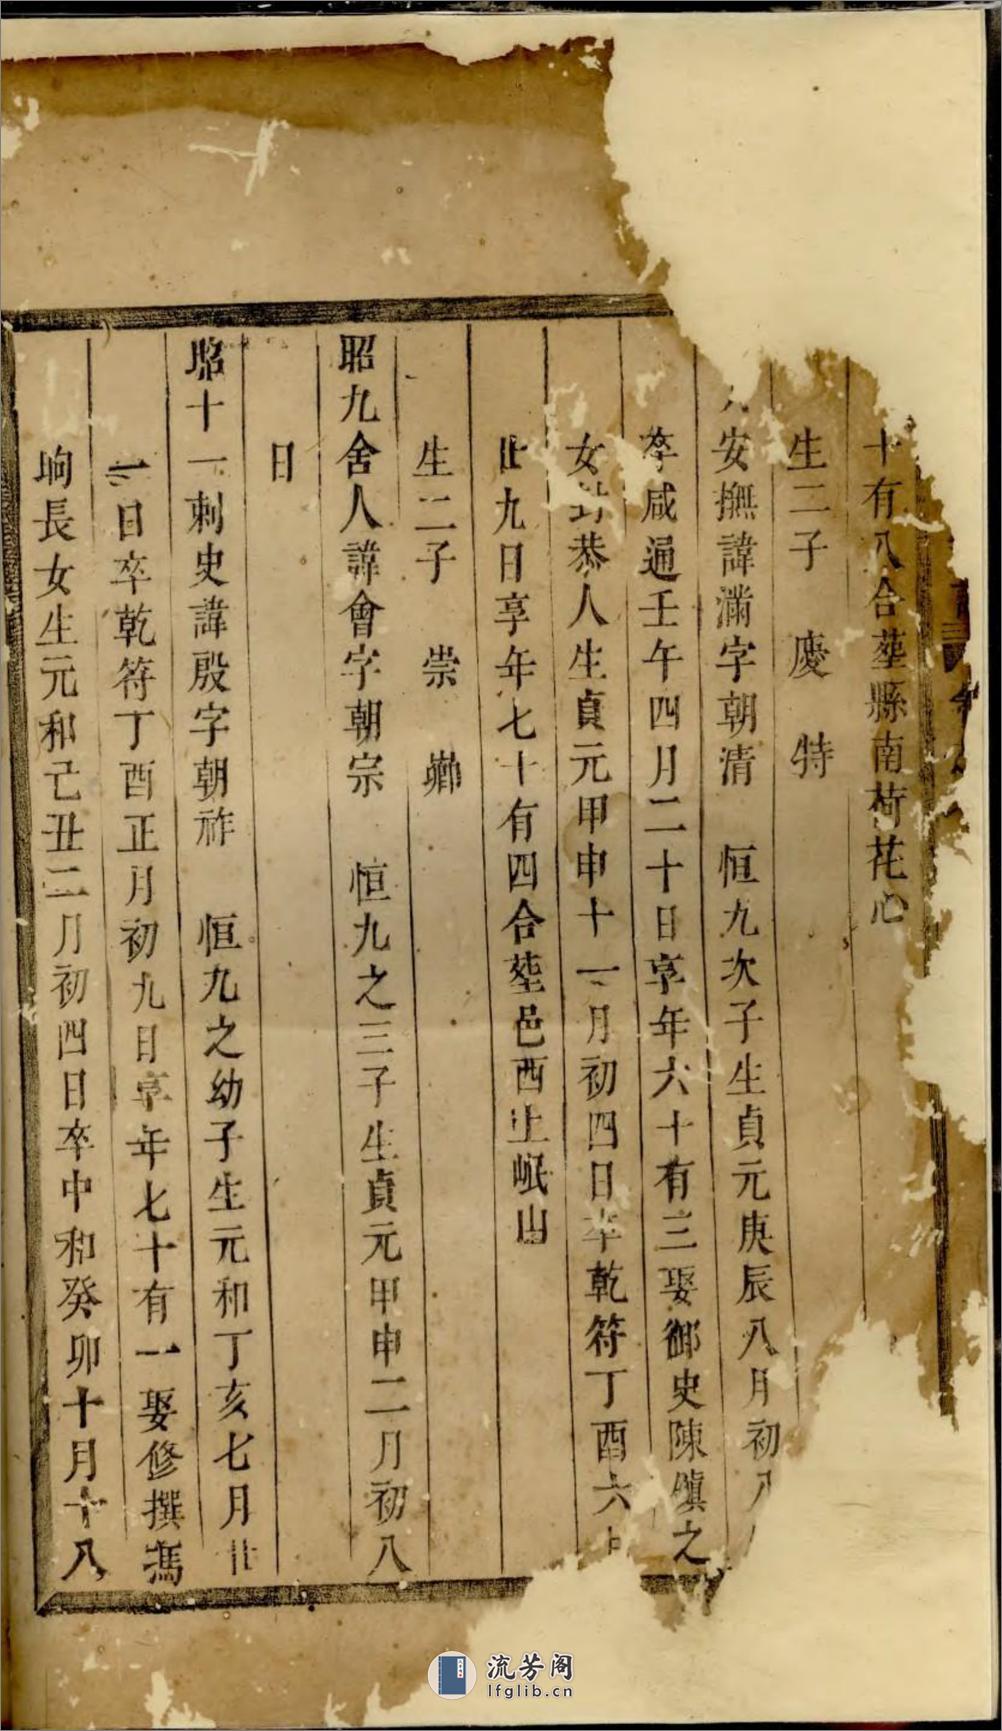 十有八合塟縣南荷花心
生二子 慶 特
安撫諱滿字朝清 恒九次子生貞元庚辰八月初八
卒咸通壬午四月二十日享年六十有三娶御史陳縝之
女封恭人生貞元甲申十一月初四日卒乾符丁酉六
廿九日享年七十有四合塟邑西上岷山
生二子 崇 卿
昭九舍人諱會字朝宗 恒九之三子生貞元甲申二月初八
日
昭十一刺史諱殷字朝祚 恒九之幼子生元和丁亥七月廿
二日卒乾符丁酉正月初九日享年七十有一娶修撰馮
垧長女生元和己丑二月初四日卒中和癸卯十月十八
流芳阁
lfglib.cn